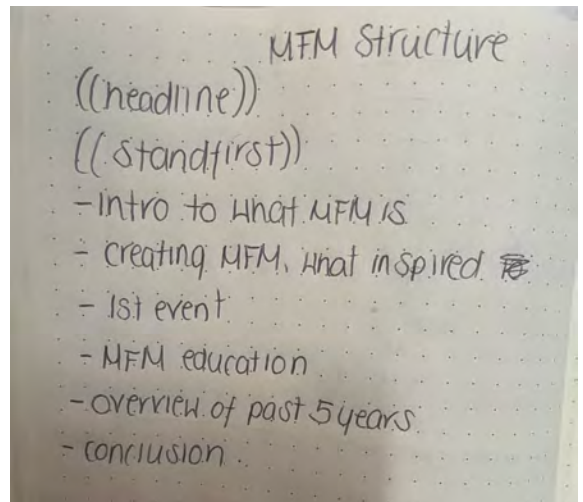 MFM Structure
((headline))
((standfirst))
- intro to what MFM is
- creating MFM, what inspired
- 1st event
- MFM education
- overview of past 5 years
- conclusion